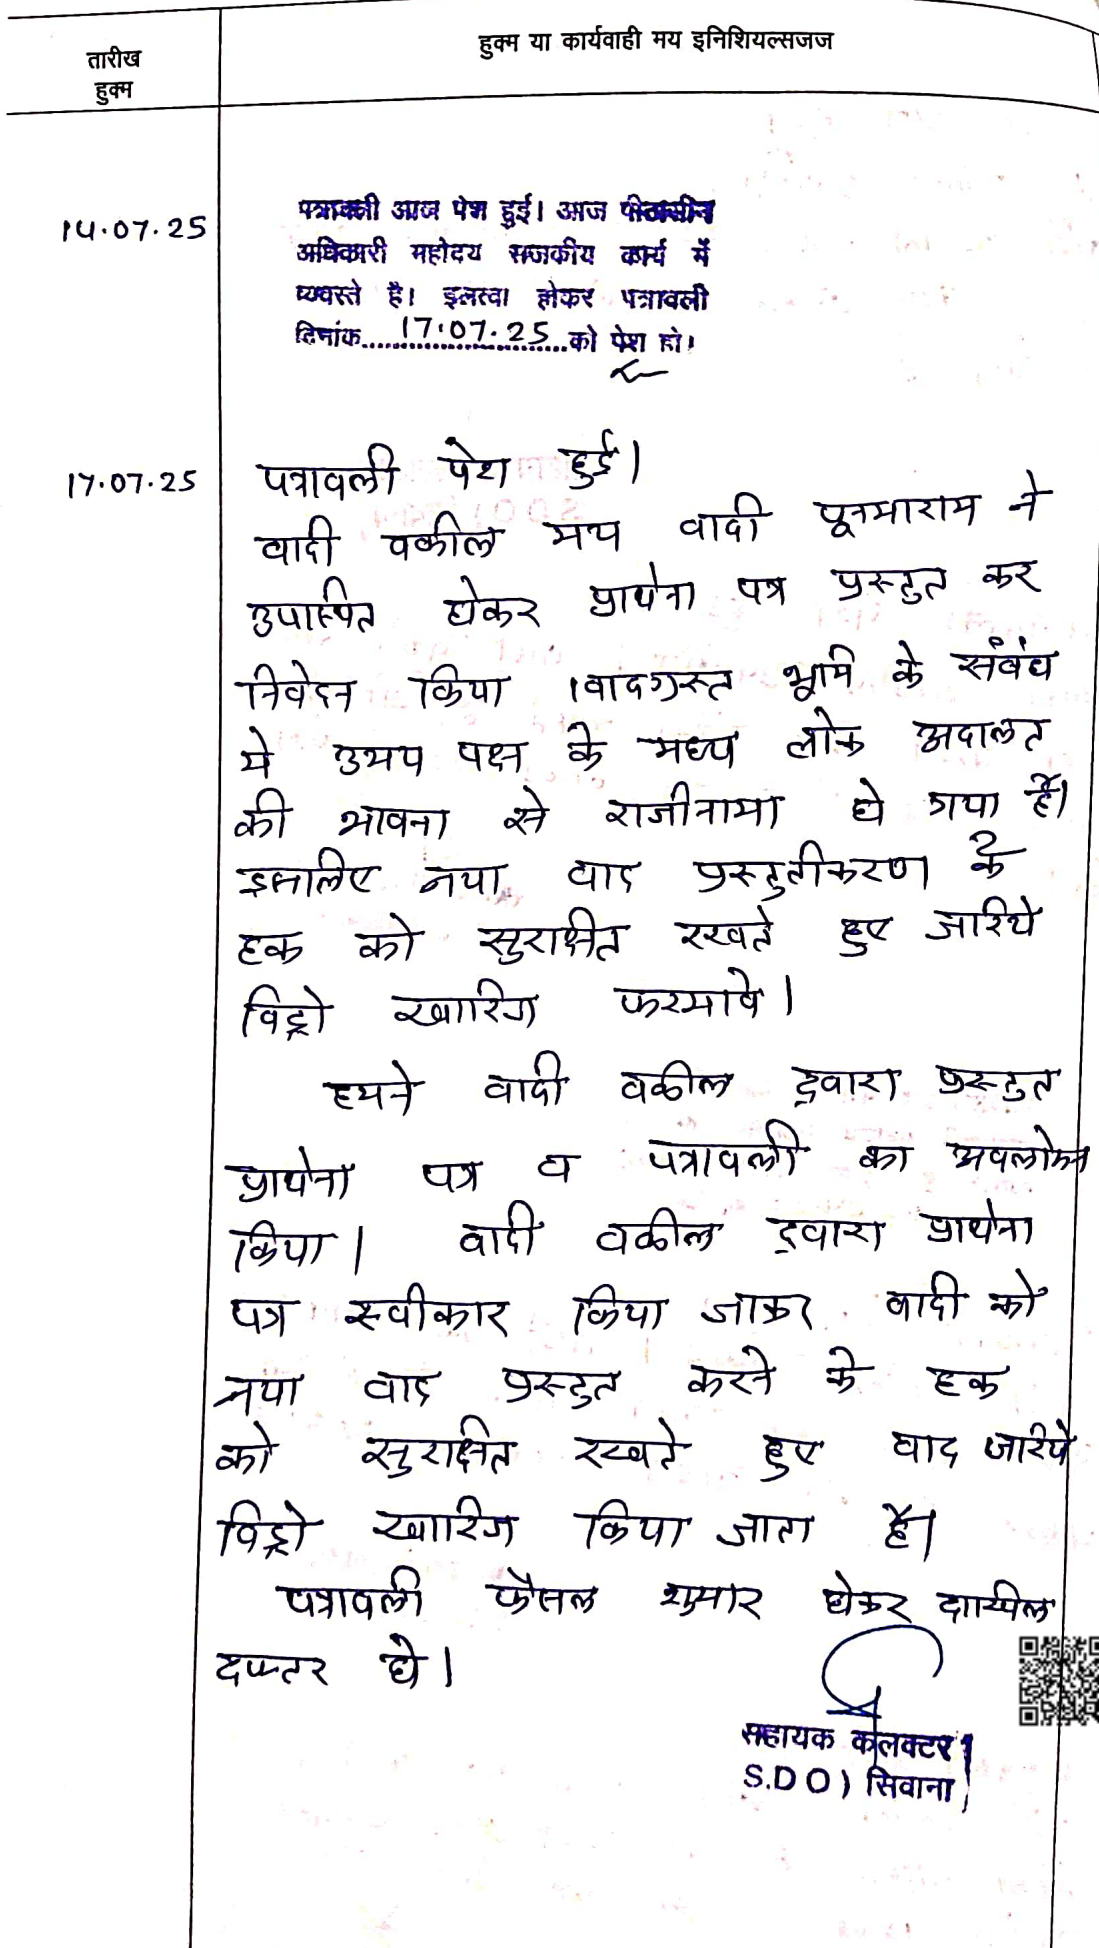 तारीख
हुक्म
हुक्म या कार्यवाही मय इनिशियल्सजज
14.07.25
पत्रावली आज पेश हुई। आज पीठासीन
अधिकारी महोदय राजकीय कार्य में
व्यस्त है। इलत्वा होकर पत्रावली
दिनांक 17.07.25 को पेश हो।
17.07.25
पत्रावली पेश हुई।
वादी वकील मय वादी पूनमाराम ने
उपास्थित होकर प्रार्थना पत्र प्रस्तुत कर
निवेदन किया । वादग्रस्त भूमि के संबंध
मे उभय पक्ष के मध्य लोक अदालत
की भावना से राजीनामा हो गया है।
इसलिए नया वाद प्रस्तुतीकरण के
हक को सुरक्षित रखते हुए जरिये
विड्रो खारिज फरमावे ।
हमने वादी वकील द्वारा प्रस्तुत
प्रार्थना पत्र व पत्रावली का अवलोकन
किया । वादी वकील द्वारा प्रार्थना
पत्र स्वीकार किया जाकर वादी को
नया वाद प्रस्तुत करने के हक
को सुरक्षित रखते हुए वाद जरिये
विड्रो खारिज किया जाता है।
पत्रावली फैसल शुमार होकर दाखिल
दफ्तर हो ।
सहायक कलक्टर
S.D O ) सिवाना